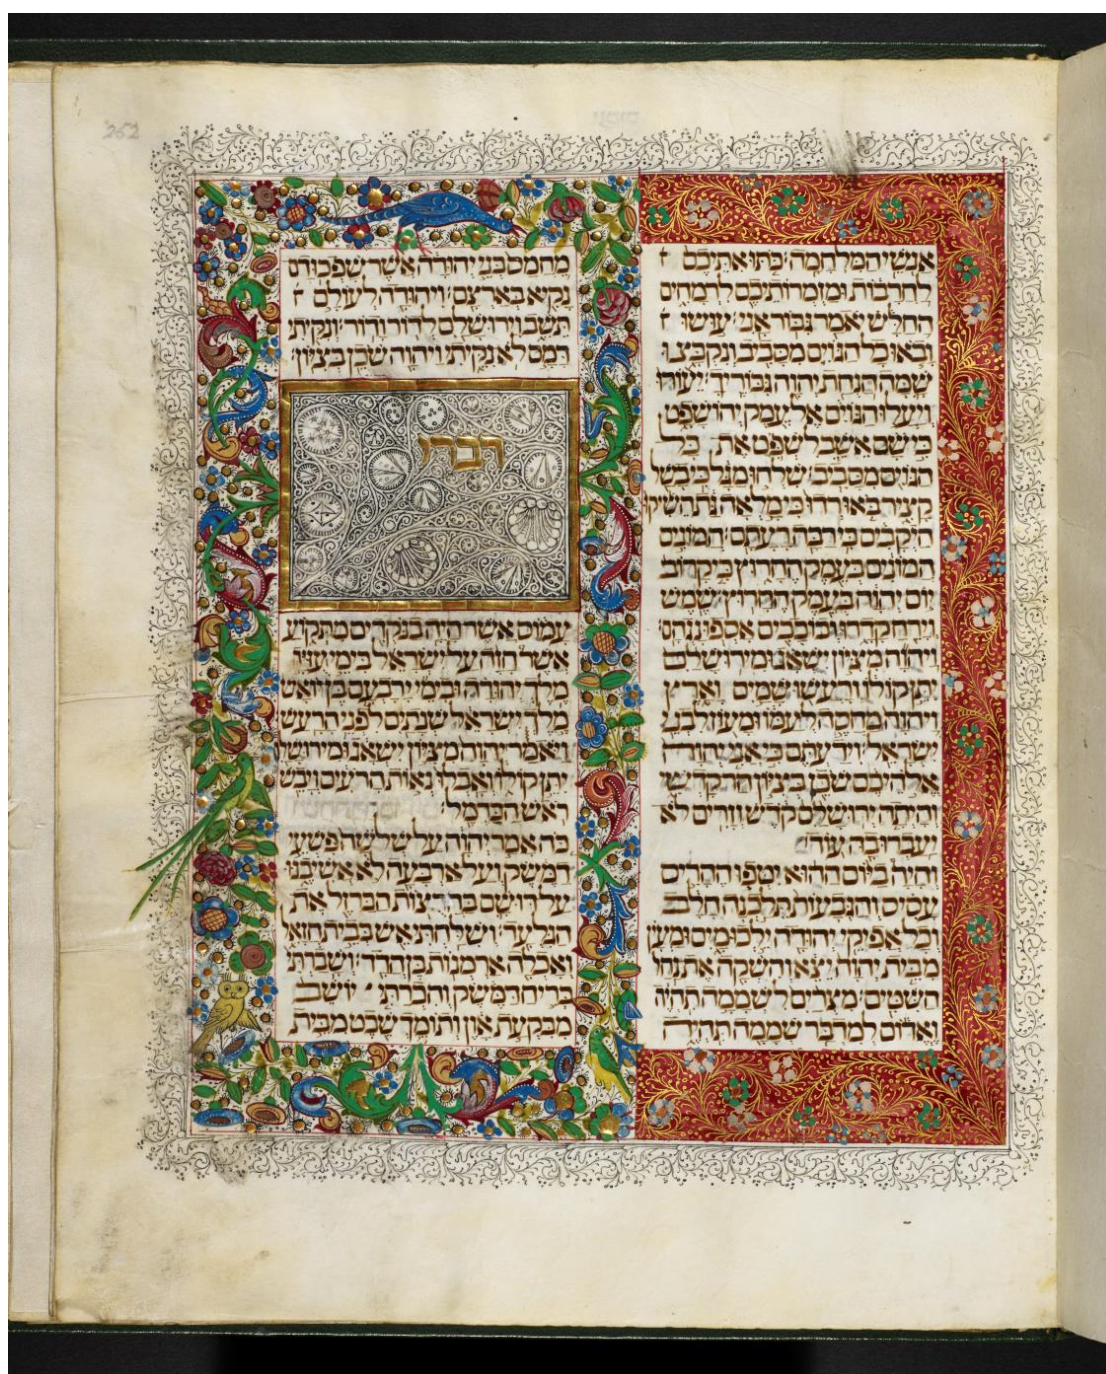 262
אנשי המלחמה׃ כתו אתיכם
לחרבות ומזמרותיכם לרמחים
החלש יאמר גבור אני׃ עושו
ובאו כל הגוים מסביב ונקבצו
שמה הנחת יהוה גבוריך׃ יעורו
ויעלו הגוים אל עמק יהושפט
כי שם אשב לשפט את כל
הגוים מסביב׃ שלחו מגל כי בשל
קציר באו רדו כי מלאה גת השיקו
היקבים כי רבה רעתם׃ המונים
המונים בעמק החרוץ כי קרוב
יום יהוה בעמק החרוץ׃ שמש
וירח קדרו וכוכבים אספו נגהם׃
ויהוה מציון ישאג ומירושלם
יתן קולו ורעשו שמים וארץ
ויהוה מחסה לעמו ומעוז לבני
ישראל׃ וידעתם כי אני יהוה
אלהיכם שכן בציון הר קדשי
והיתה ירושלם קדש וזרים לא
יעברו בה עוד׃
והיה ביום ההוא יטפו ההרים
עסיס והגבעות תלכנה חלב
וכל אפיקי יהודה ילכו מים ומעין
מבית יהוה יצא והשקה את נחל
השטים׃ מצרים לשממה תהיה
ואדום למדבר שממה תהיה
מחמס בני יהודה אשר שפכו דם
נקיא בארצם׃ ויהודה לעולם
תשב וירושלם לדור ודור׃ ונקיתי
דמם לא נקיתי ויהוה שכן בציון׃
דברי
עמוס אשר היה בנקדים מתקוע
אשר חזה על ישראל בימי עזיה
מלך יהודה ובימי ירבעם בן יואש
מלך ישראל שנתים לפני הרעש׃
ויאמר יהוה מציון ישאג ומירושלם
יתן קולו ואבלו נאות הרעים ויבש
ראש הכרמל׃
כה אמר יהוה על שלשה פשעי
דמשק ועל ארבעה לא אשיבנו
על דושם בחרצות הברזל את
הגלעד׃ ושלחתי אש בבית חזאל
ואכלה ארמנות בן הדד׃ ושברתי
בריח דמשק והכרתי יושב
מבקעת און ותומך שבט מבית